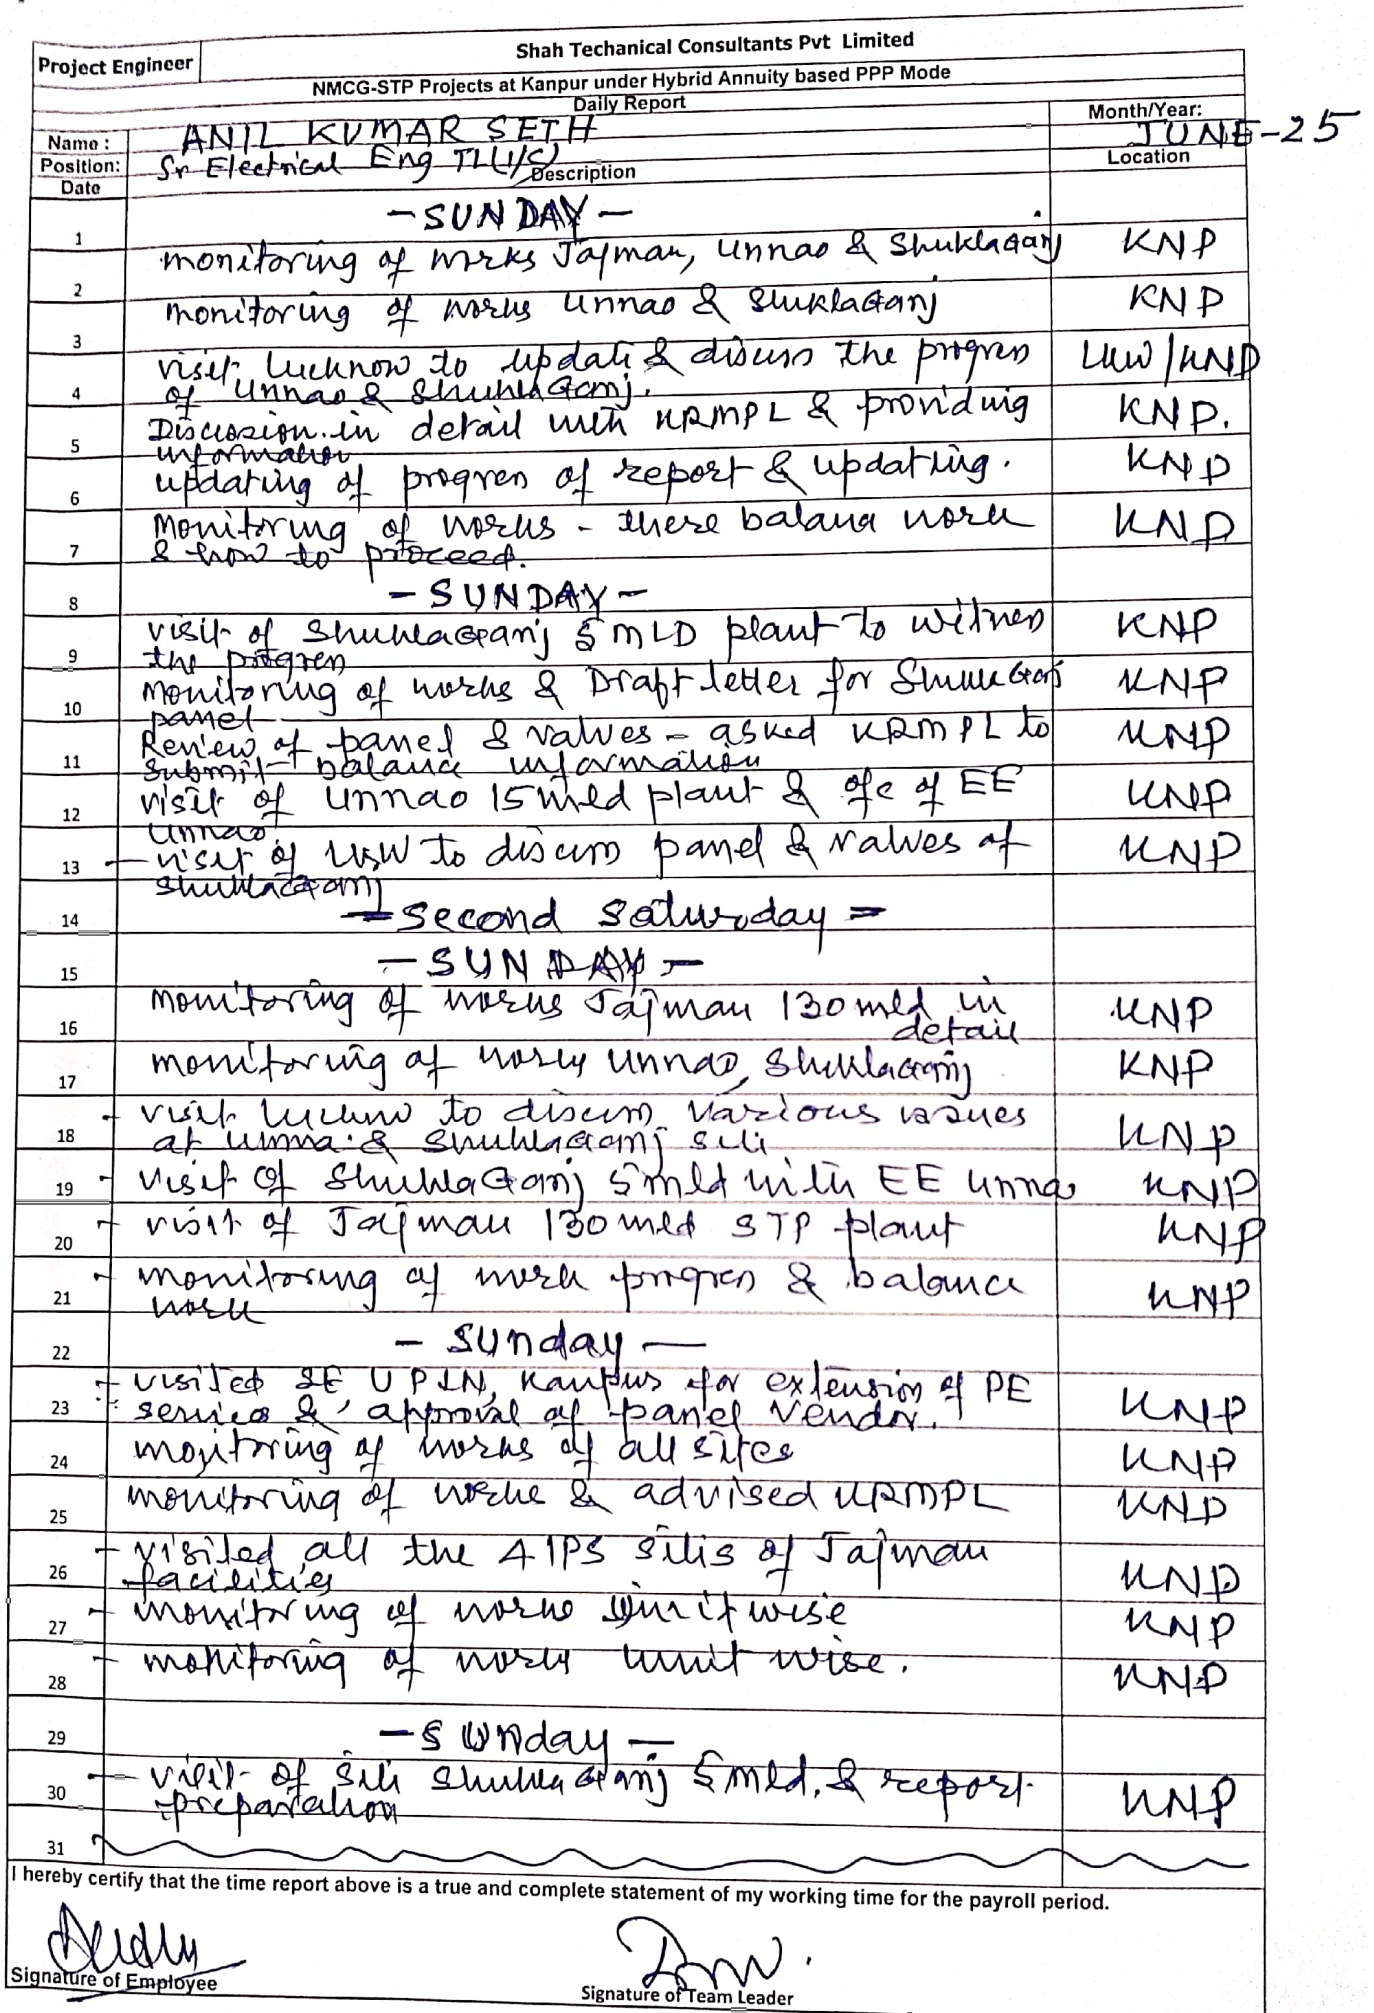 Project Engineer
Shah Techanical Consultants Pvt Limited
NMCG-STP Projects at Kanpur under Hybrid Annuity based PPP Mode
Daily Report
Month/Year:
Name : ANIL KUMAR SETH JUNE-25
Position: Sr Electrical Eng TL(I/C) Location
Date Description
1 - SUNDAY -
2 monitoring of works Jajmau, Unnao & ShuklaGanj KNP
3 monitoring of works Unnao & ShuklaGanj KNP
4 visit Lucknow to update & discuss the progress LKW/KNP
of Unnao & ShuklaGanj.
5 Discussion in detail with KRMPL & providing KNP.
information
6 updating of progress of report & updating. KNP
7 Monitoring of works - there balance work KNP
& how to proceed.
8 - SUNDAY -
9 visit of ShuklaGanj 5 MLD plant to witness KNP
the progress
10 Monitoring of works & Draft letter for ShuklaGanj KNP
panel
11 Review of panel & valves - asked KRMPL to KNP
submit balance information
12 visit of Unnao 15 mld plant & ofc of EE KNP
Unnao
13 - visit of LKW to discuss panel & valves of KNP
ShuklaGanj
14 - Second Saturday -
15 - SUNDAY -
16 Monitoring of works Jajmau 130 mld in KNP
detail
17 monitoring of works Unnao, ShuklaGanj KNP
18 - visit Lucknow to discuss various issues KNP
at Unnao & ShuklaGanj site
19 - visit of ShuklaGanj 5 mld with EE Unnao KNP
20 - visit of Jajmau 130 mld STP plant KNP
21 - monitoring of work progress & balance KNP
work
22 - Sunday -
23 - visited SE UPJN, Kanpur for extension of PE KNP
service & approval of panel Vendor.
24 monitoring of works of all sites KNP
25 monitoring of works & advised KRMPL KNP
26 - visited all the 4 IPS sites of Jajmau KNP
facilities
27 - monitoring of works unit wise KNP
28 - monitoring of works unit wise. KNP
29 - Sunday -
30 - visit of site ShuklaGanj 5 mld, & report KNP
preparation
31
I hereby certify that the time report above is a true and complete statement of my working time for the payroll period.
Signature of Employee
Signature of Team Leader